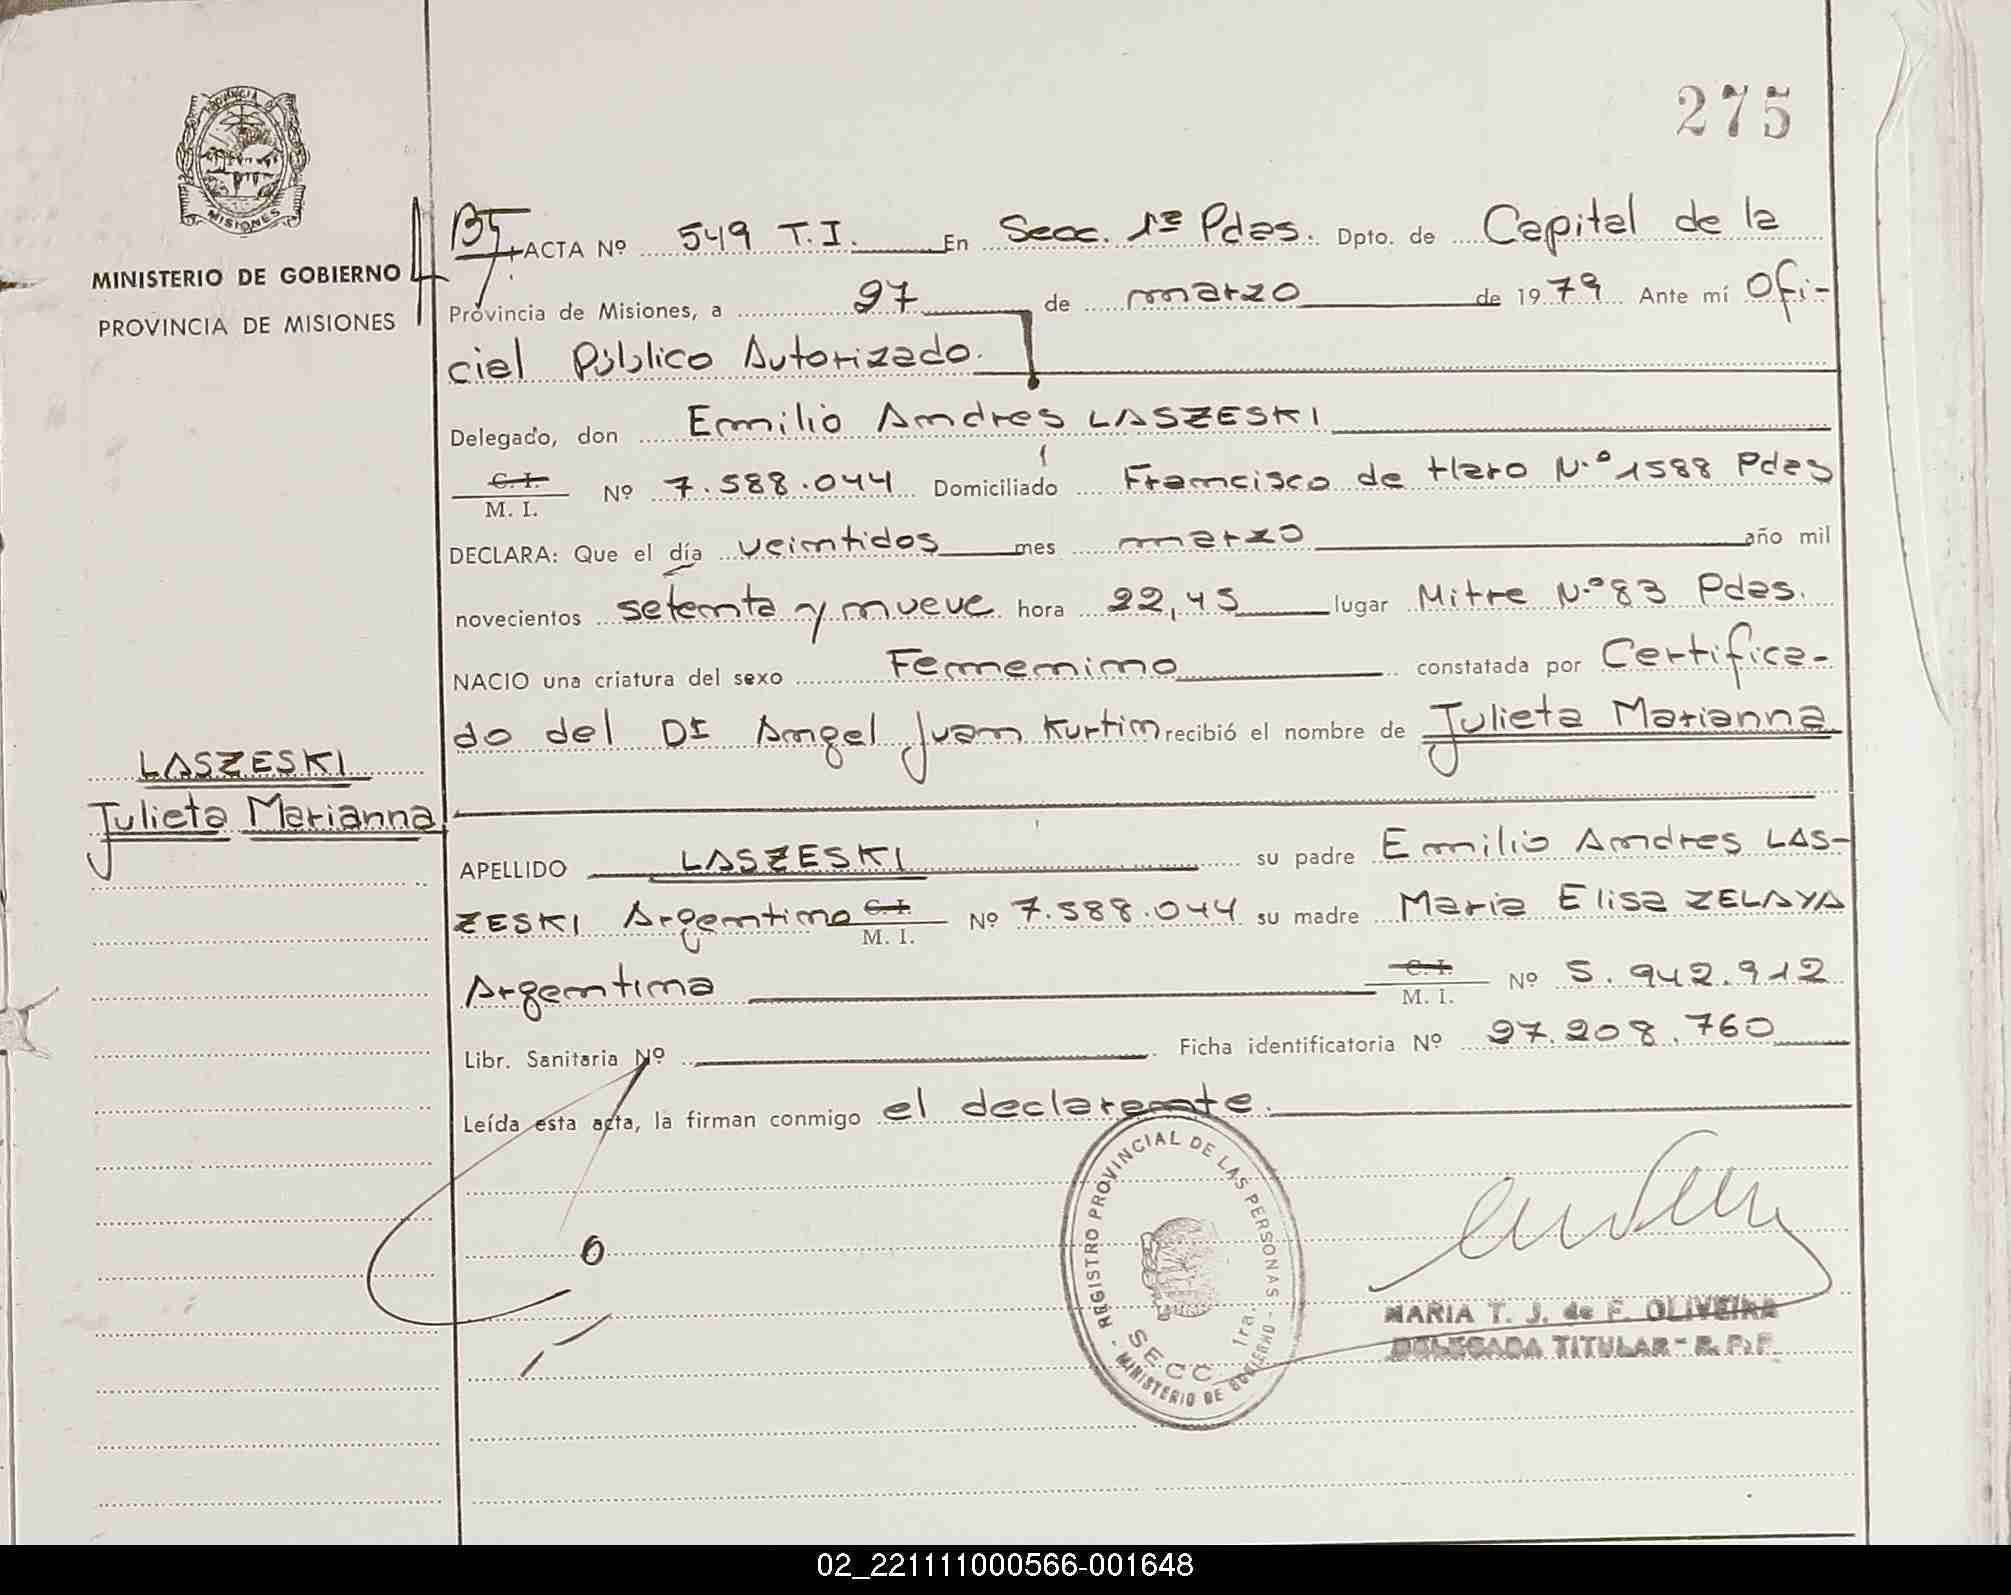 275
PROVINCIA D
MISIONES
MINISTERIO DE GOBIERNO
PROVINCIA DE MISIONES
ACTA Nº 549 T.I. En Secc. 1ª Pdas. Dpto. de Capital de la
Provincia de Misiones, a 27 de marzo de 1979 Ante mí Ofi-
cial Público Autorizado.
Delegado, don Emilio Andres LASZESKI
C. I.
M. I. Nº 7.588.044 Domiciliado Francisco de Haro N.º 1588 Pdas
DECLARA: Que el día veintidos mes marzo año mil
novecientos setenta y nueve hora 22,45 lugar Mitre N.º 83 Pdas.
NACIO una criatura del sexo Femenino constatada por Certifica-
do del Dr Angel Juan Kurtin recibió el nombre de Julieta Marianna
LASZESKI
Julieta Marianna
APELLIDO LASZESKI su padre Emilio Andres LAS-
ZESKI Argentino C. I. M. I. Nº 7.588.044 su madre Maria Elisa ZELAYA
Argentina C. I. M. I. Nº 5.942.912
Libr. Sanitaria Nº Ficha identificatoria Nº 27.208.760
Leída esta acta, la firman conmigo el declarante.
REGISTRO PROVINCIAL DE LAS PERSONAS - MINISTERIO DE GOBIERNO -
SECC. 1ra.
MARIA T. J. de F. OLIVEIRA
DELEGADA TITULAR - R. P. P.
02_221111000566-001648